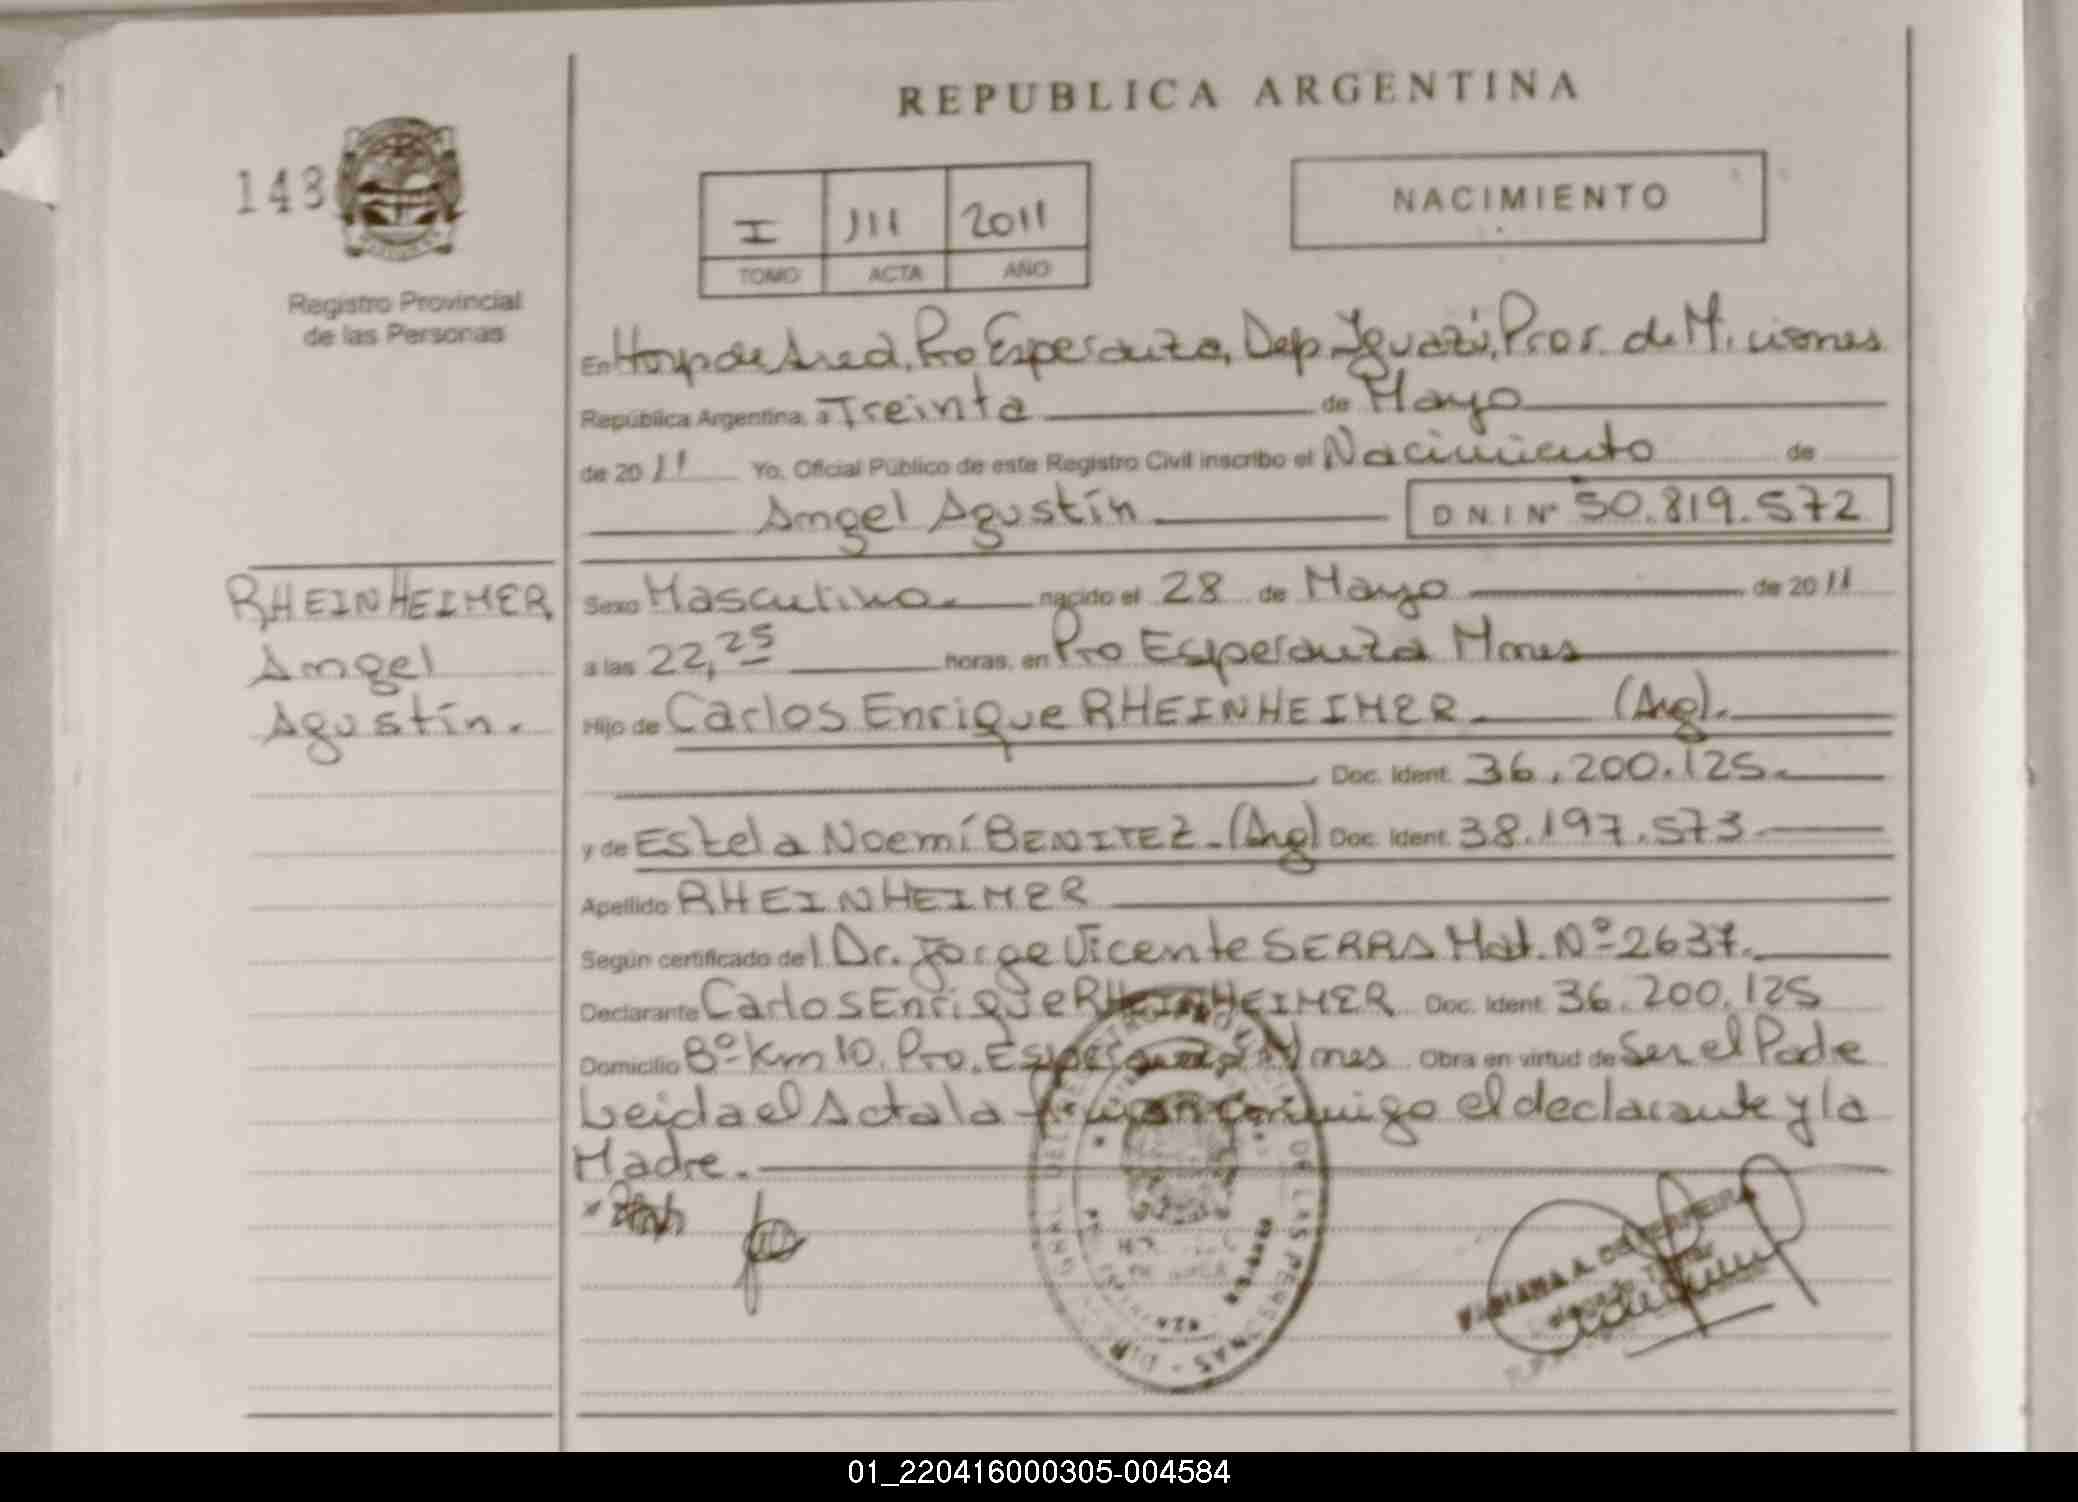 REPUBLICA ARGENTINA
143
NACIMIENTO
I 111 2011
TOMO ACTA AÑO
Registro Provincial
de las Personas
En Hosp de Area, Pto Esperanza, Dep. Iguazú, Prov. de Misiones
República Argentina, a Treinta de Mayo
de 2011 Yo, Oficial Público de este Registro Civil inscribo el Nacimiento de
Angel Agustín D N I Nº 50.819.572
RHEINHEIMER
Angel
Agustín.
Sexo Masculino. nacido el 28 de Mayo de 2011
a las 22,25 horas, en Pto Esperanza Mnes
Hijo de Carlos Enrique RHEINHEIMER (Arg).
Doc. Ident. 36.200.125.
y de Estela Noemí BENITEZ. (Arg) Doc. Ident. 38.197.573
Apellido RHEINHEIMER
Según certificado del Dr. Jorge Vicente SERRA Mat. Nº 2637.
Declarante Carlos Enrique RHEINHEIMER Doc. Ident. 36.200.125
Domicilio Bº Km 10. Pto. Esperanza Mnes Obra en virtud de Ser el Padre
Leida el Acta la firman conmigo el declarante y la
Madre.
DE LAS PERSONAS
01_220416000305-004584